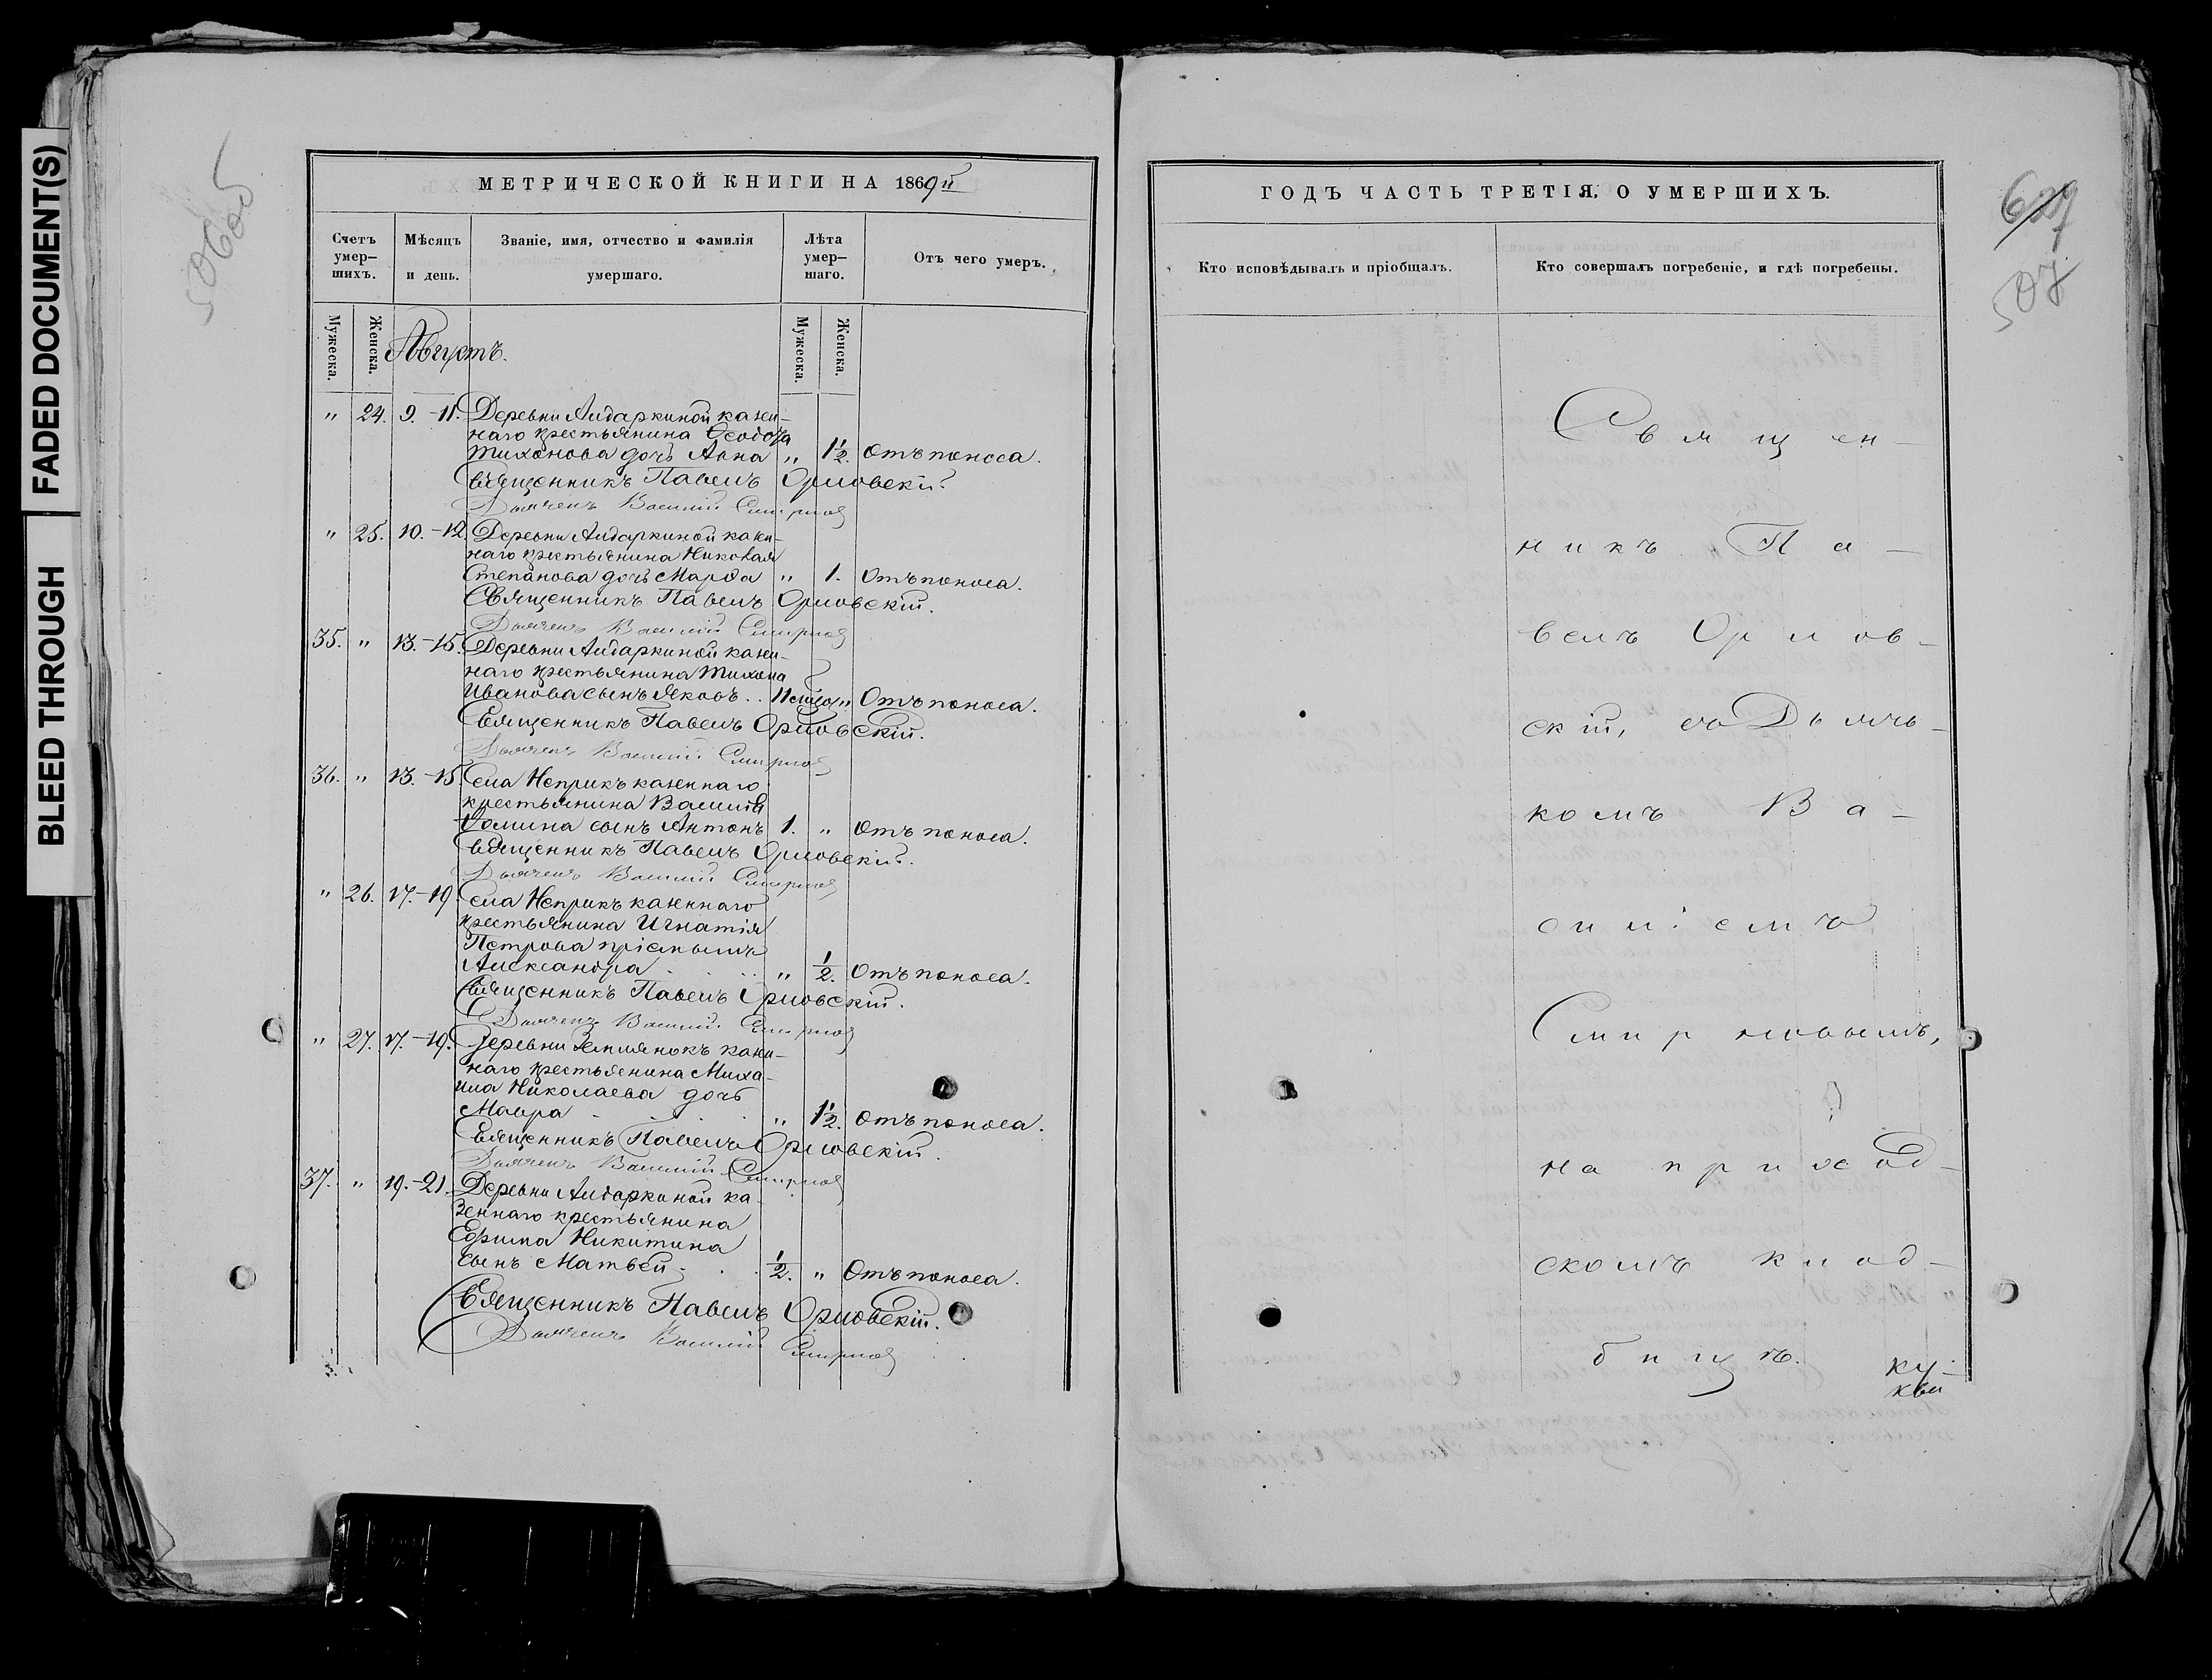 FADED DOCUMENT(S)
BLEED THROUGH
506об
МЕТРИЧЕСКОЙ КНИГИ НА 1869й
Счетъ умер–шихъ.
Мѣсяцъ и день.
Званіе, имя, отчество и фамилія умершаго.
Лѣта умер–шаго.
Отъ чего умеръ.
Мужеска.
Женска.
Августъ.
Мужеска.
Женска.
" 24. 9.-11. Деревни Аидаркиной казен-
наго крестьянина Ѳеодора
Тихонова дочь Анна " 1½. Отъ поноса.
Священникъ Павелъ Орловскій.
Дьячекъ Василій Смирнов
" 25. 10.-12. Деревни Аидаркиной казен-
наго крестьянина Николая
Степанова дочь Марѳа " 1. Отъ поноса.
Священникъ Павелъ Орловскій.
Дьячекъ Василій Смирнов
35. " 13.-15. Деревни Аидаркиной казен-
наго крестьянина Тихона
Иванова сынъ Яковъ.. " Отъ поноса.
Священникъ Павелъ Орловскій.
Дьячекъ Василій Смирнов
36. " 13.-15. Села Неприкъ казеннаго
крестьянина Василія
Ѳомина сынъ Антонъ 1. " Отъ поноса.
Священникъ Павелъ Орловскій.
Дьячекъ Василій Смирнов
" 26. 17.-19. Села Неприкъ казеннаго
крестьянина Игнатія
Петрова пріемышъ
Александра . . . " ½. Отъ поноса.
Священникъ Павелъ Орловскій.
Дьячекъ Василій Смирнов
" 27. 17.-19. Деревни Землянокъ казен-
наго крестьянина Миха-
ила Николаева дочь
Мавра . . . " 1½. Отъ поноса.
Священникъ Павелъ Орловскій.
Дьячекъ Василій Смирнов
37. " 19.-21. Деревни Аидаркиной ка-
зеннаго крестьянина
Ефима Никитина
сынъ Матвей . . . ½. " Отъ поноса.
Священникъ Павелъ Орловскій.
Дьячекъ Василій Смирнов
629
507
ГОДЪ ЧАСТЬ ТРЕТІЯ, О УМЕРШИХЪ.
Кто исповѣдывалъ и пріобщалъ.
Кто совершалъ погребеніе, и гдѣ погребены.
Священ-
никъ Па-
велъ Орлов-
скій, съ Дьяч-
комъ Ва-
силіемъ
Смирновымъ,
на приход-
скомъ клад-
бищѣ.